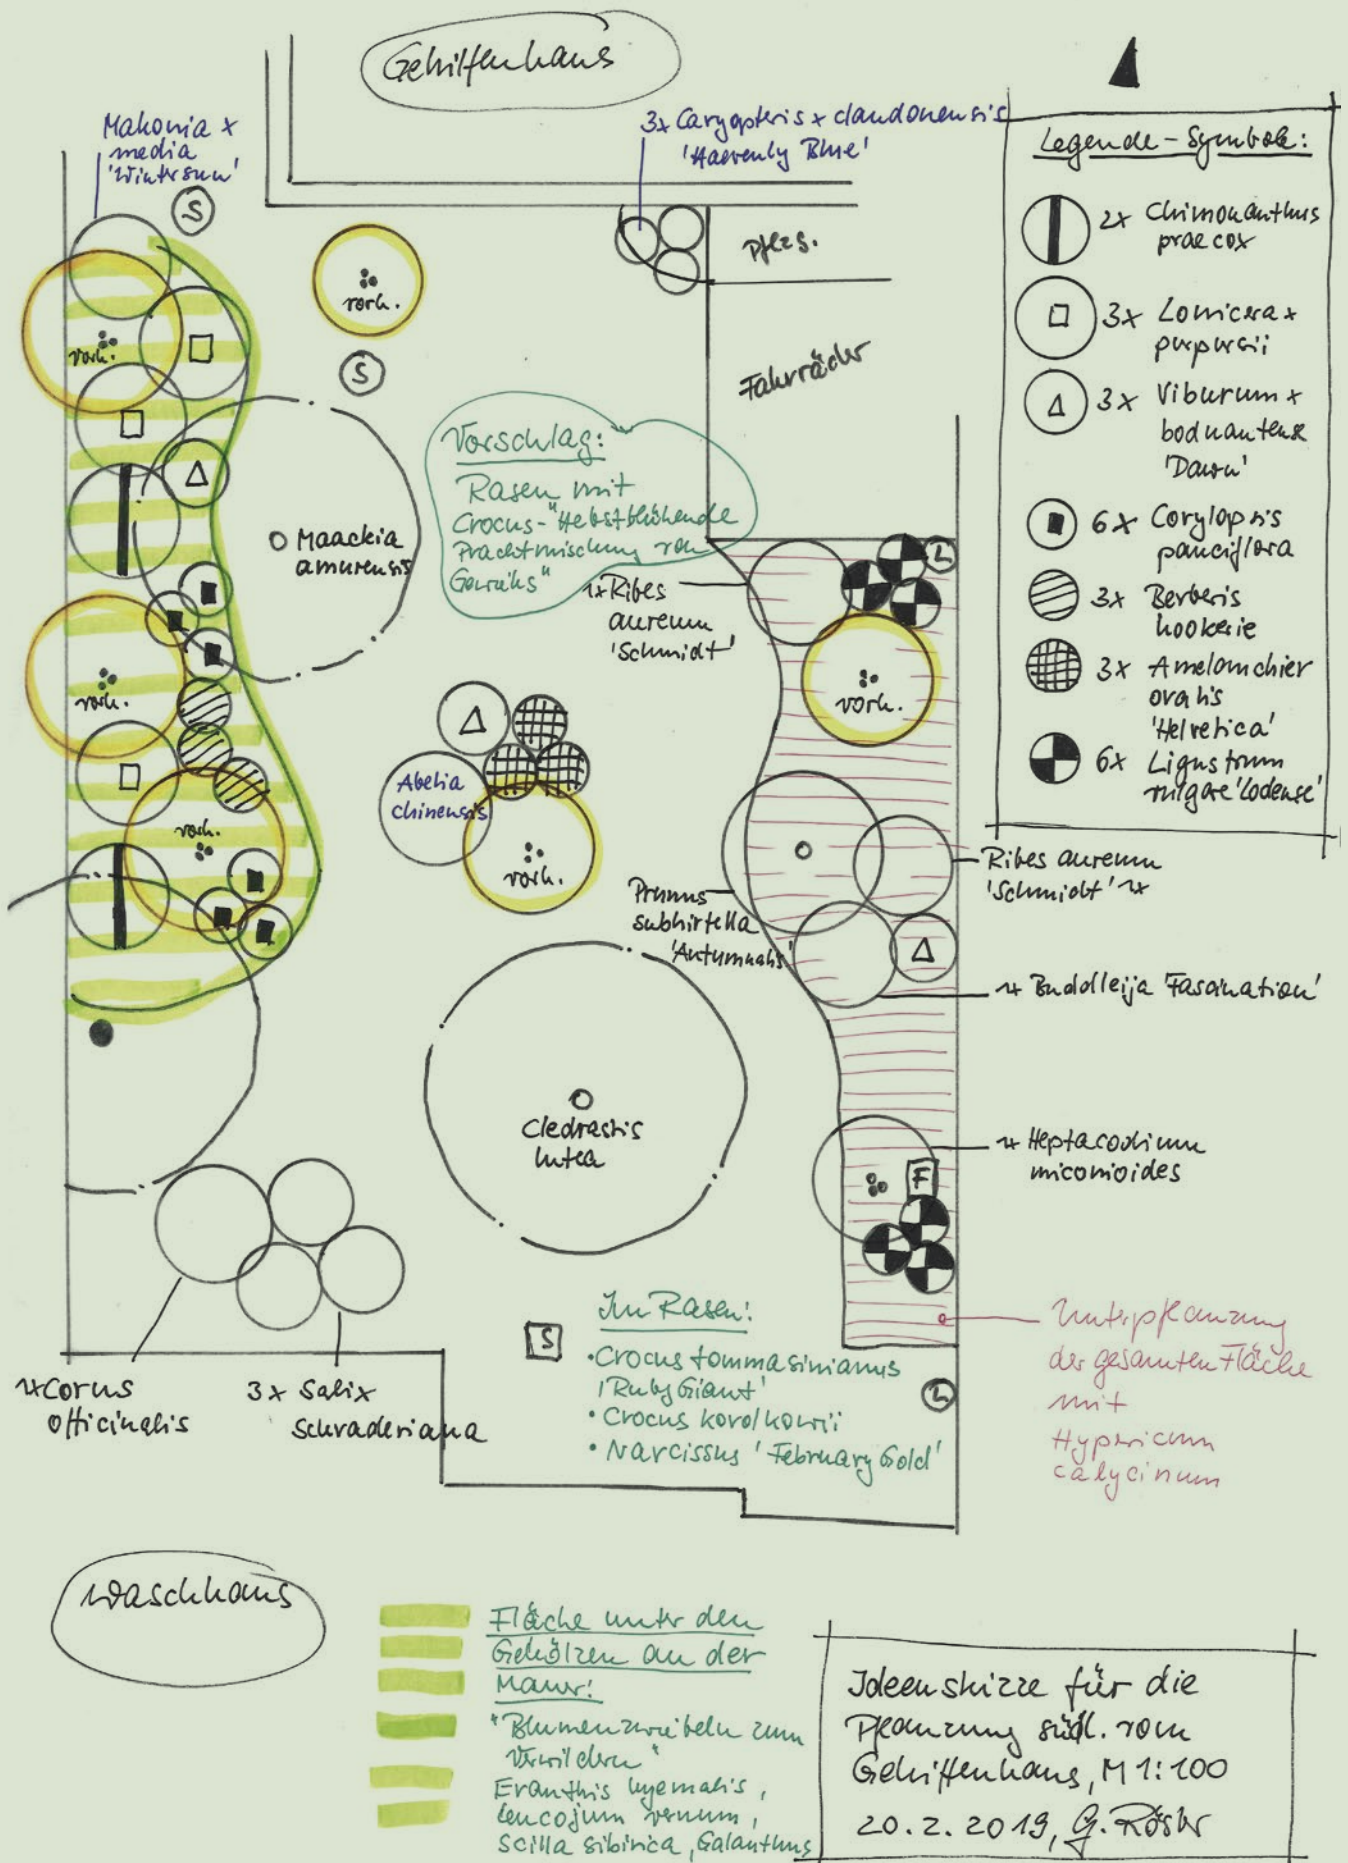 Gehilfenhaus
Mahonia x
media
'Wintersun'
S
3x Caryopteris x clandonensis
'Haevenly Blue'
Legende-Symbole:
2x Chimonanthus
praecox
3x Lonicera x
purpusii
3x Viburum x
bodnantense
'Dawn'
6x Corylopsis
pauciflora
3x Berberis
hookerie
3x Amelanchier
ovalis
'Helvetica'
6x Ligustrum
vulgare 'Lodense'
vorh.
vorh.
S
Pflzs.
Fahrräder
Vorschlag:
Rasen mit
Crocus-"Hebstblühende
Prachtmischung von
Gewiehs"
Maackia
amurensis
1x Ribes
aureum
'Schmidt'
L
vorh.
vorh.
vorh.
Abelia
chinensis
vorh.
Prunus
subhirtella
'Autumnalis'
Ribes aureum
'Schmidt' 1x
1x Buddleija 'Fascination'
Cledrastis
lutea
1x Heptacodium
miconioides
F
1x Corus
officinalis
3x Salix
Schraderiana
S
Im Rasen:
•Crocus tommasinianus
'Ruby Giant'
•Crocus korolkowii
•Narcissus 'February Gold'
L
Unterpflanzung
der gesamten Fläche
mit
Hypericum
calycinum
Waschhaus
Fläche unter den
Gehölzen an der
Mauer:
"Blumenzwiebeln zum
Verwildern"
Eranthis hyemalis,
Leucojum vernum,
Scilla sibirica, Galanthus
Ideenskizze für die
Pflanzung südl. vom
Gehilfenhaus, M 1:100
20.2.2019, G. Rösler